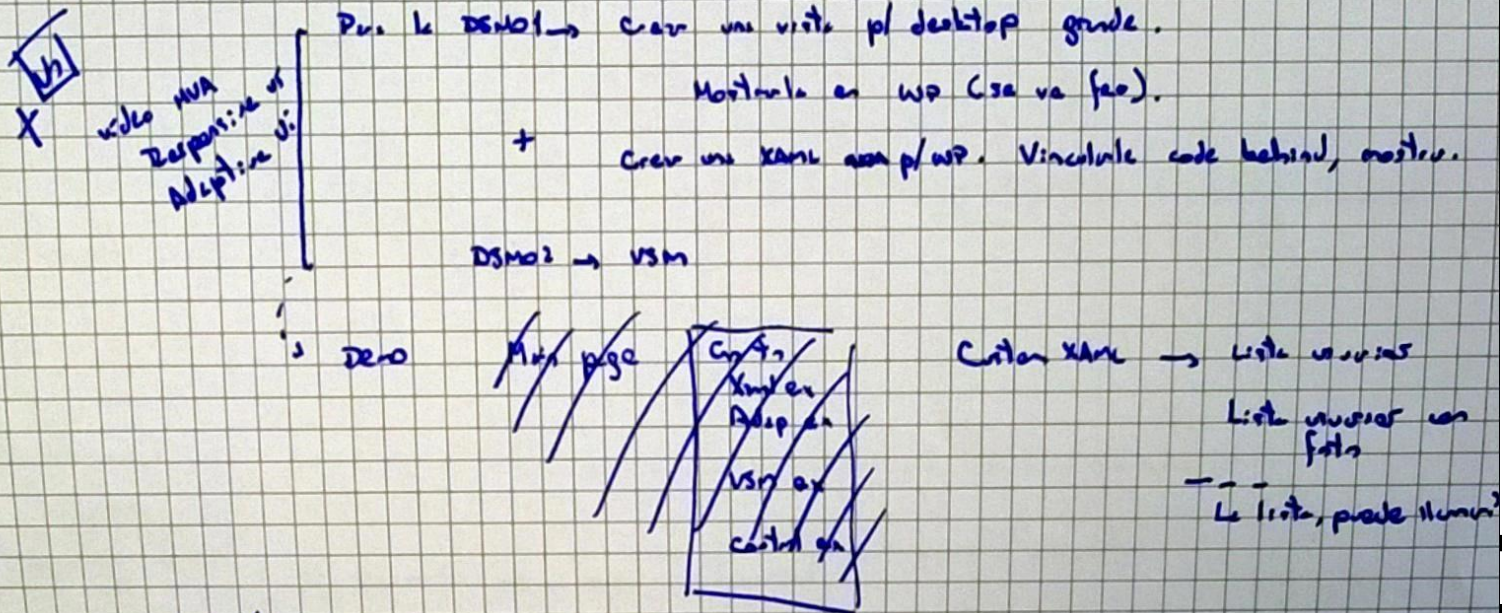 video MVA
Responsive vs
Adaptive Ui
Para la DEMO1 → Crear una vista p/ desktop grande.
Mostrarla en WP (se ve feo).
+
Crear un XAML p/ WP. Vincularle code behind, mostrar.
DEMO2 → VSM
Demo
Main page
Xaml ex
Adap ex
VSM ex
Control ex
Custom XAML → Lista usuarios
Lista usuarios con
foto
La lista, puede